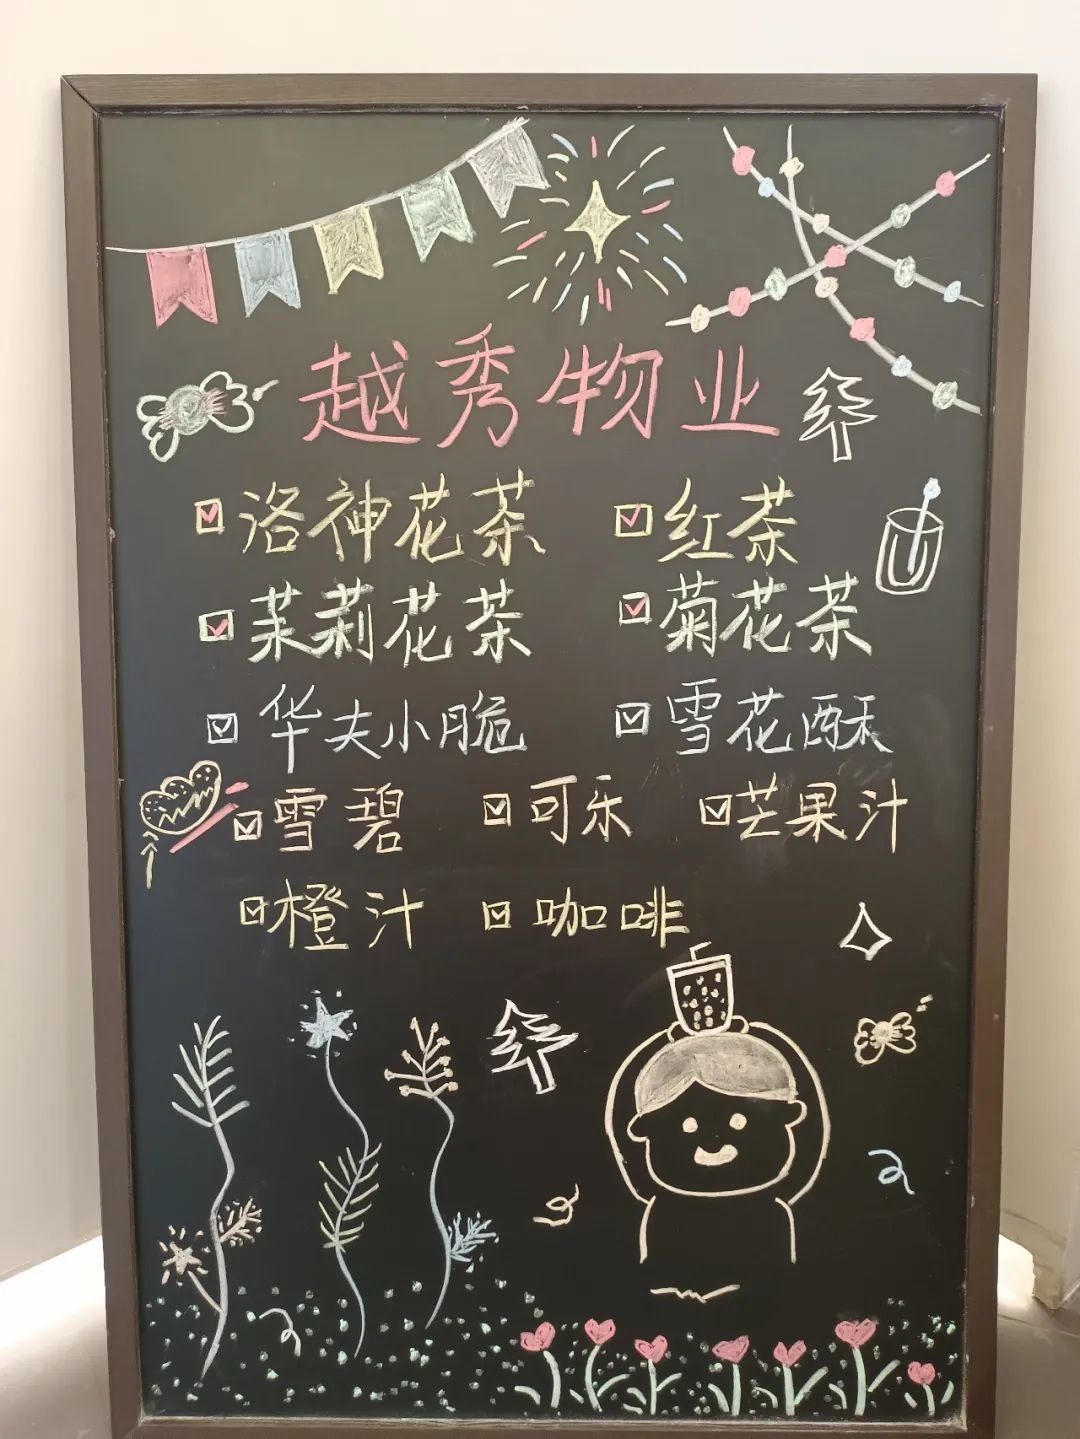 越秀物业
洛神花茶 红茶
茉莉花茶 菊花茶
华夫小脆 雪花酥
雪碧 可乐 芒果汁
橙汁 咖啡